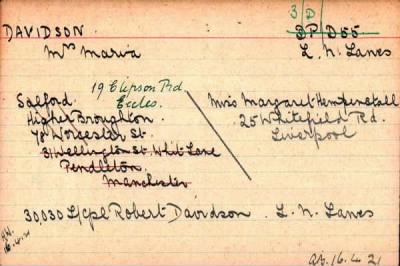 3/D/
DAVIDSON. 3P D55
Mrs Maria L. N. Lancs
19 Clipson Rd.
Eccles.
Salford
Higher Broughton.
70 Worcester St.
31 Wellington St. White Lane
Pendleton
Manchester
Mrs Margaret Hempenstall
25 Whitefield Rd.
Liverpool
30,030 L/Cpl Robert Davidson. L. N. Lancs
16.4.21
16.4.21